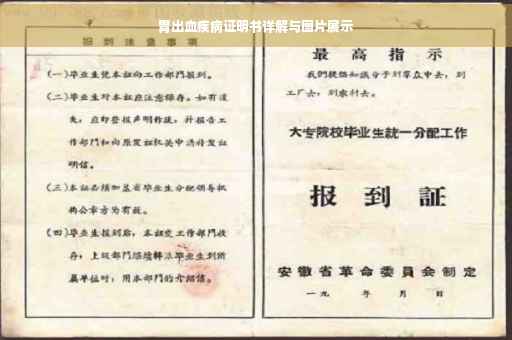 胃出血疾病证明书详解与图片展示
报到注意事项
(一)毕业生凭本证向工作部門报到。
(二)毕业生对本证应注意保存。如有遺
失，应即登报声明作废，并报告工
作部門和向原发证机关申請补发证
明信。
(三)本证必须加盖省毕业生分配领导机
构公章方为有效。
(四)毕业生报到后，本证交工作部門收
存；上级部門继續轉派毕业生到所
属单位时，用本部門的介紹信。
最高指示
我們提倡知識分子到羣众中去，到
工厂去，到农村去。
大专院校毕业生統一分配工作
报到証
安徽省革命委員会制定
一九 年 月 日